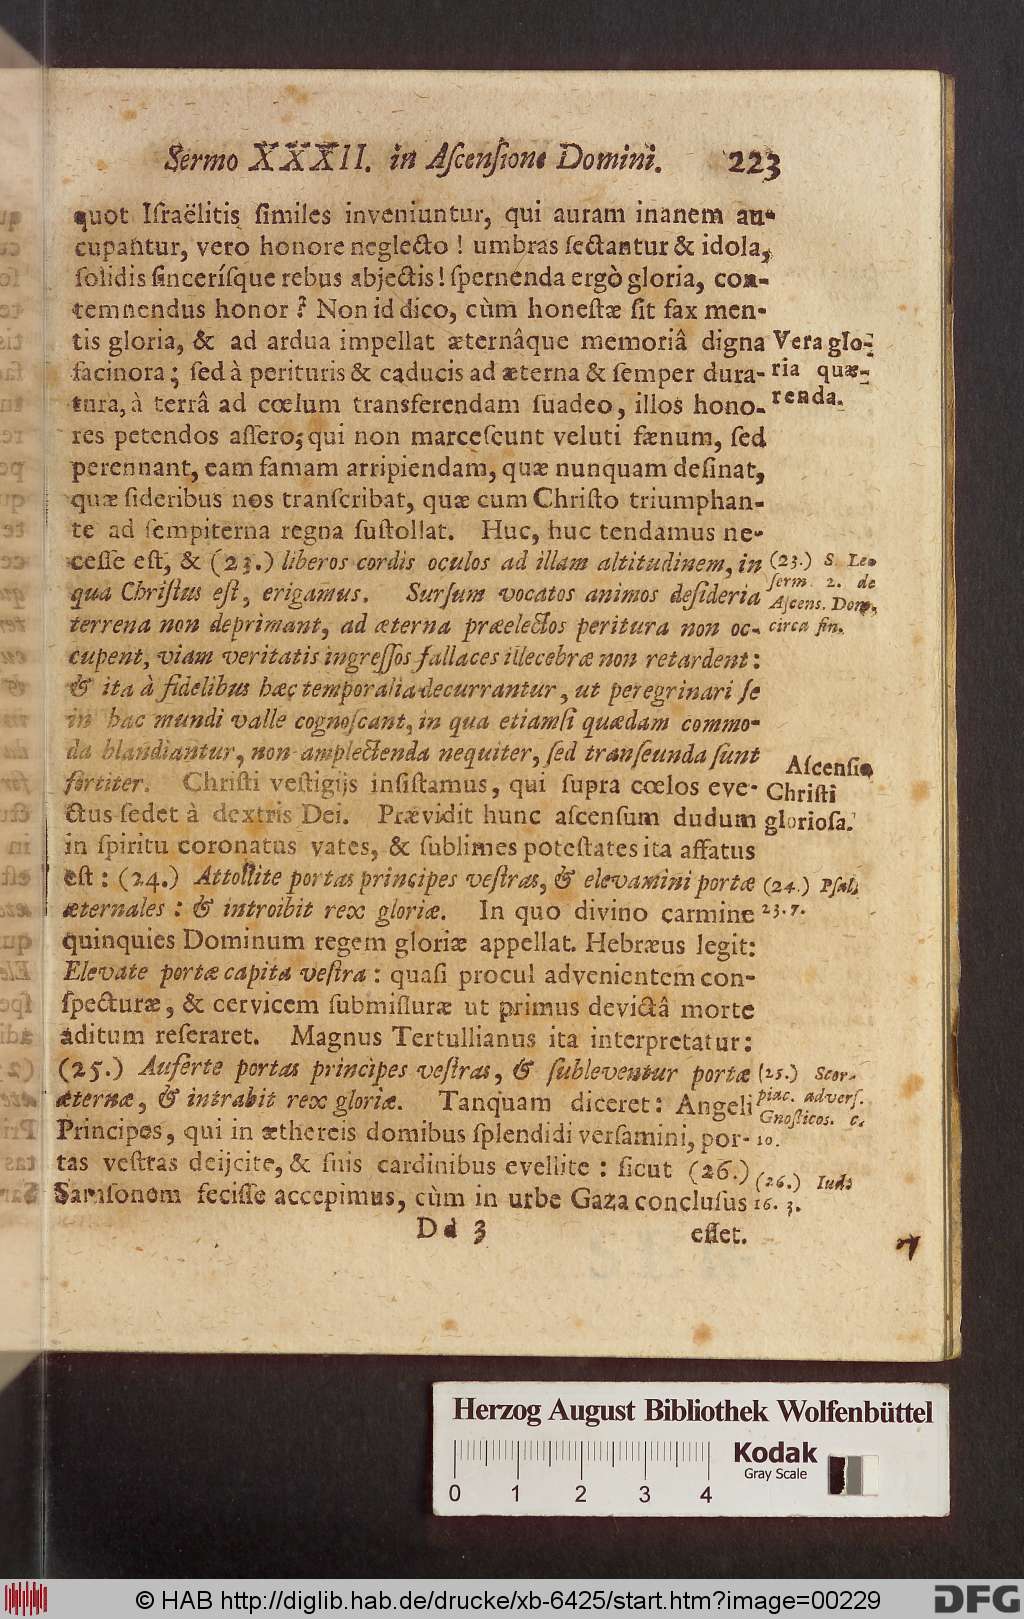 Sermo XXXII. in Aſcenſione Domini. 223
quot Iſraëlitis ſimiles inveniuntur, qui auram inanem au-
cupantur, vero honore neglecto! umbras ſectantur & idola,
ſolidis ſinceríſque rebus abjectis! ſpernenda ergò gloria, con-
temnendus honor? Non id dico, cùm honeſtæ ſit fax men-
tis gloria, & ad ardua impellat æternâque memoriâ digna
facinora; ſed à perituris & caducis ad æterna & ſemper dura-
tura, à terrâ ad cœlum transferendam ſuadeo, illos hono-
res petendos aſſero; qui non marceſcunt veluti fænum, ſed
perennant, eam famam arripiendam, quæ nunquam deſinat,
quæ ſideribus nos tranſcribat, quæ cum Chriſto triumphan-
te ad ſempiterna regna ſuſtollat. Huc, huc tendamus ne-
ceſſe eſt, & (23.) liberos cordis oculos ad illam altitudinem, in
qua Chriſtus eſt, erigamus. Surſum vocatos animos deſideria
terrena non deprimant, ad æterna præelectos peritura non oc-
cupent, viam veritatis ingreſſos fallaces illecebræ non retardent:
& ita à fidelibus hæc temporalia decurrantur, ut peregrinari ſe
in hac mundi valle cognoſcant, in qua etiamſi quædam commo-
da blandiantur, non amplectenda nequiter, ſed tranſeunda ſunt
fortiter. Chriſti veſtigijs inſiſtamus, qui ſupra cœlos eve-
ctus ſedet à dextris Dei. Prævidit hunc aſcenſum dudum
in ſpiritu coronatus vates, & ſublimes poteſtates ita affatus
eſt: (24.) Attollite portas principes veſtras, & elevamini portæ
æternales: & introibit rex gloriæ. In quo divino carmine
quinquies Dominum regem gloriæ appellat. Hebræus legit:
Elevate portæ capita veſtra: quaſi procul advenientem con-
ſpecturæ, & cervicem ſubmiſſuræ ut primus devictâ morte
aditum reſeraret. Magnus Tertullianus ita interpretatur:
(25.) Auferte portas principes veſtras, & ſubleventur portæ
æternæ, & intrabit rex gloriæ. Tanquam diceret: Angeli
Principes, qui in æthereis domibus ſplendidi verſamini, por-
tas veſtras deijcite, & ſuis cardinibus evellite: ſicut (26.)
Samſonem feciſſe accepimus, cùm in urbe Gaza concluſus
Dd 3 eſſet.
Vera glo-
ria quæ-
renda.
(23.) S. Leo
ſerm. 2. de
Aſcens. Dom.
circa fin.
Aſcenſio
Chriſti
glorioſa.
(24.) Pſal.
23. 7.
(25.) Scor-
piac. adverſ.
Gnoſticos. c.
10.
(26.) Iud.
16. 3.
Herzog August Bibliothek Wolfenbüttel
Kodak
Gray Scale
0 1 2 3 4
© HAB http://diglib.hab.de/drucke/xb-6425/start.htm?image=00229
DFG